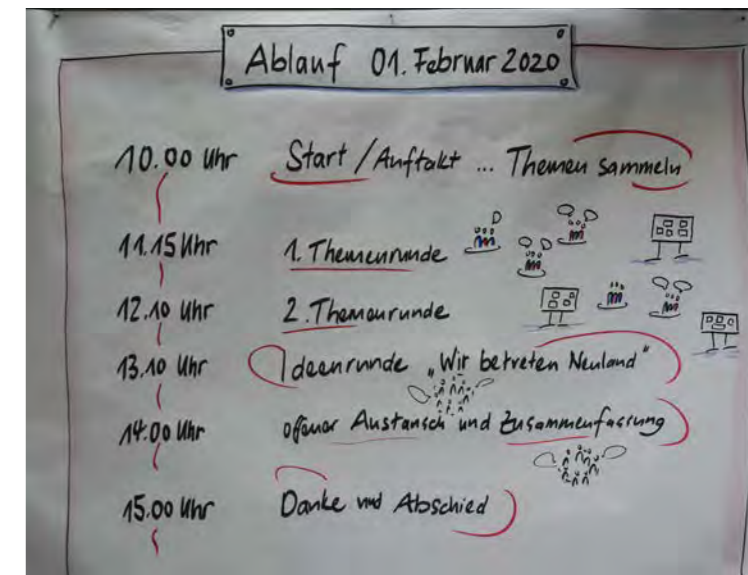 Ablauf 01. Februar 2020
10.00 Uhr Start / Auftakt ... Themen sammeln
11.15 Uhr 1. Themenrunde
12.10 Uhr 2. Themenrunde
13.10 Uhr Ideenrunde „Wir betreten Neuland"
14.00 Uhr offener Austausch und Zusammenfassung
15.00 Uhr Danke und Abschied